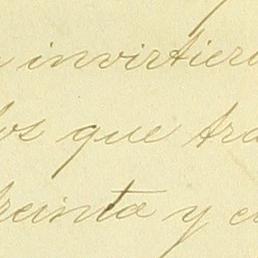 invirtier
los que tra
treinta y c